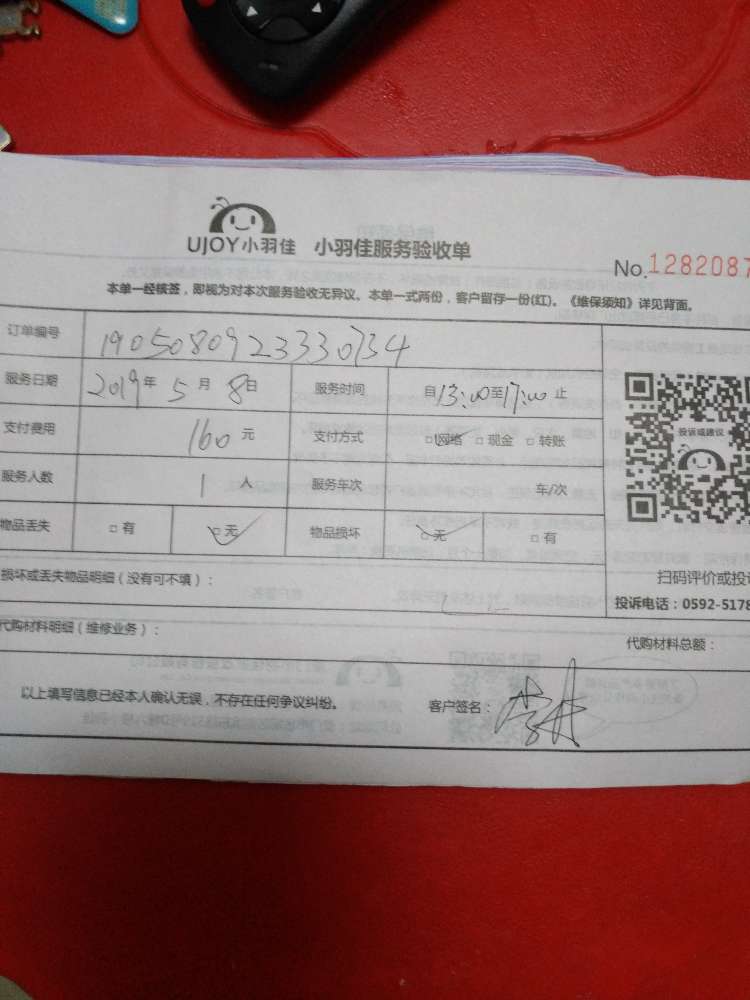 UJOY小羽佳 小羽佳服务验收单
No.1282087
本单一经核签，即视为对本次服务验收无异议。本单一式两份，客户留存一份(红)。《维保须知》详见背面。
订单编号 1905080923330734
服务日期 2019年 5月 8日 服务时间 自13:00至17:00止
支付费用 160元 支付方式 □网络 □现金 □转账
服务人数 1人 服务车次 车/次
物品丢失 □有 □无 物品损坏 □无 □有
投诉或建议
损坏或丢失物品明细（没有可不填）：
扫码评价或投诉
投诉电话：0592-5178
代购材料明细（维修业务）：
代购材料总额：
以上填写信息已经本人确认无误，不存在任何争议纠纷。 客户签名：